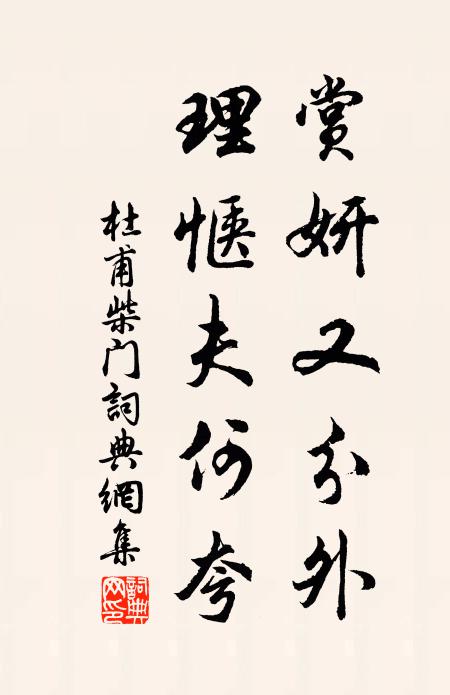 賞妍又分外
理愜夫何夸
杜甫柴门詞典網集
詞典网印